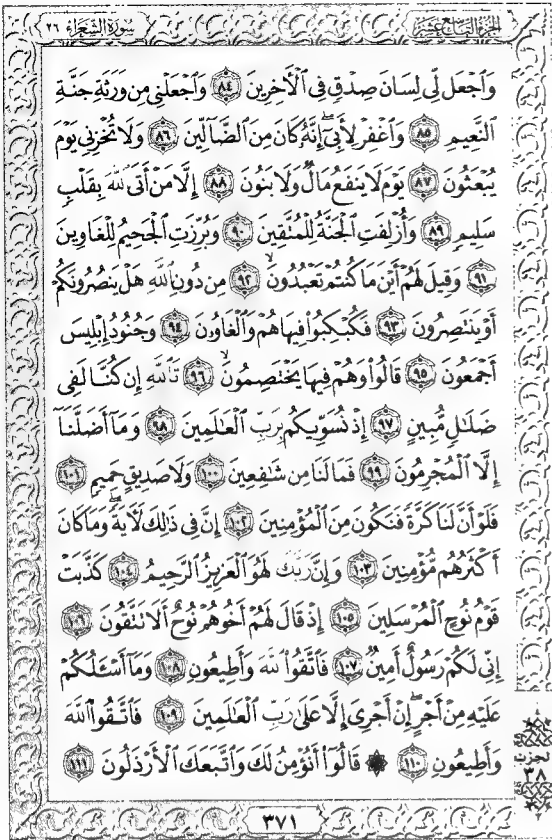 الجزء التاسع عشر
سورة الشعراء ٢٦
وَٱجْعَل لِّى لِسَانَ صِدْقٍ فِى ٱلْأَخِرِينَ ٨٤ وَٱجْعَلْنِى مِن وَرَثَةِ جَنَّةِ
ٱلنَّعِيمِ ٨٥ وَٱغْفِرْ لِأَبِىٓ إِنَّهُۥ كَانَ مِنَ ٱلضَّآلِّينَ ٨٦ وَلَا تُخْزِنِى يَوْمَ
يُبْعَثُونَ ٨٧ يَوْمَ لَا يَنفَعُ مَالٌ وَلَا بَنُونَ ٨٨ إِلَّا مَنْ أَتَى ٱللَّهَ بِقَلْبٍ
سَلِيمٍ ٨٩ وَأُزْلِفَتِ ٱلْجَنَّةُ لِلْمُتَّقِينَ ٩٠ وَبُرِّزَتِ ٱلْجَحِيمُ لِلْغَاوِينَ
٩١ وَقِيلَ لَهُمْ أَيْنَ مَا كُنتُمْ تَعْبُدُونَ ٩٢ مِن دُونِ ٱللَّهِ هَلْ يَنصُرُونَكُمْ
أَوْ يَنتَصِرُونَ ٩٣ فَكُبْكِبُوا۟ فِيهَا هُمْ وَٱلْغَاوُۥنَ ٩٤ وَجُنُودُ إِبْلِيسَ
أَجْمَعُونَ ٩٥ قَالُوا۟ وَهُمْ فِيهَا يَخْتَصِمُونَ ٩٦ تَٱللَّهِ إِن كُنَّا لَفِى
ضَلَـٰلٍ مُّبِينٍ ٩٧ إِذْ نُسَوِّيكُم بِرَبِّ ٱلْعَـٰلَمِينَ ٩٨ وَمَآ أَضَلَّنَآ
إِلَّا ٱلْمُجْرِمُونَ ٩٩ فَمَا لَنَا مِن شَـٰفِعِينَ ١٠٠ وَلَا صَدِيقٍ حَمِيمٍ ١٠١
فَلَوْ أَنَّ لَنَا كَرَّةً فَنَكُونَ مِنَ ٱلْمُؤْمِنِينَ ١٠٢ إِنَّ فِى ذَٰلِكَ لَأَيَةً وَمَا كَانَ
أَكْثَرُهُم مُّؤْمِنِينَ ١٠٣ وَإِنَّ رَبَّكَ لَهُوَ ٱلْعَزِيزُ ٱلرَّحِيمُ ١٠٤ كَذَّبَتْ
قَوْمُ نُوحٍ ٱلْمُرْسَلِينَ ١٠٥ إِذْ قَالَ لَهُمْ أَخُوهُمْ نُوحٌ أَلَا تَتَّقُونَ ١٠٦
إِنِّى لَكُمْ رَسُولٌ أَمِينٌ ١٠٧ فَٱتَّقُوا۟ ٱللَّهَ وَأَطِيعُونِ ١٠٨ وَمَآ أَسْـَٔلُكُمْ
عَلَيْهِ مِنْ أَجْرٍ إِنْ أَجْرِىَ إِلَّا عَلَىٰ رَبِّ ٱلْعَـٰلَمِينَ ١٠٩ فَٱتَّقُوا۟ ٱللَّهَ
وَأَطِيعُونِ ١١٠ ۞ قَالُوٓا۟ أَنُؤْمِنُ لَكَ وَٱتَّبَعَكَ ٱلْأَرْذَلُونَ ١١١
لحزب
٣٨
٣٧١